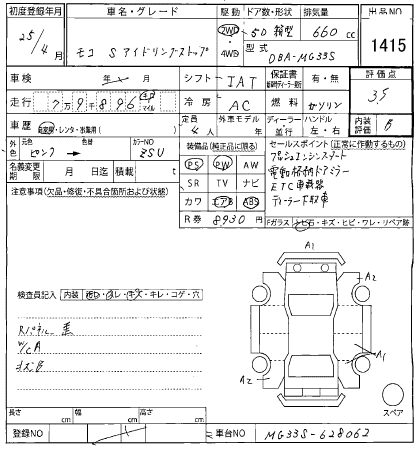 初度登録年月 車名・グレード 駆動 ドア数・形状 排気量 出品NO
25/4月 モコ S アイドリングストップ 2WD 4WD 5D 箱型 660cc 1415
型式 DBA-MG33S
車検 年 月 シフト IAT 保証書 有・無 評価点
走行 7万9千896 km マイル 冷房 AC 燃料 ガソリン 3.5
車歴 自家用・レンタ・営業用( ) 定員 4人 外車モデル 年 ディーラー 並行 ハンドル 左・右 内装評価 B
外色 元色 ピンク → 色替 カラーNO ZSU
装備品(純正品に限る)
セールスポイント(正常に作動するもの)
名義変更期限 月 日迄 積載 t
PS PW AW
プッシュエンジンスタート
電動格納ドアミラー
注意事項(欠品・修復・不具合箇所および状態)
SR TV ナビ
ETC車載器
カワ エアB ABS
ディーラー下取車
R券 8930円
Fガラス 飛び石・キズ・ヒビ・ワレ・リペア跡
A1
A2
検査員記入 内装 キレ・コゲ・穴
W/CA
A2
A1
スペア
長さ cm 幅 cm 高さ cm
登録NO
車台NO MG33S-628062